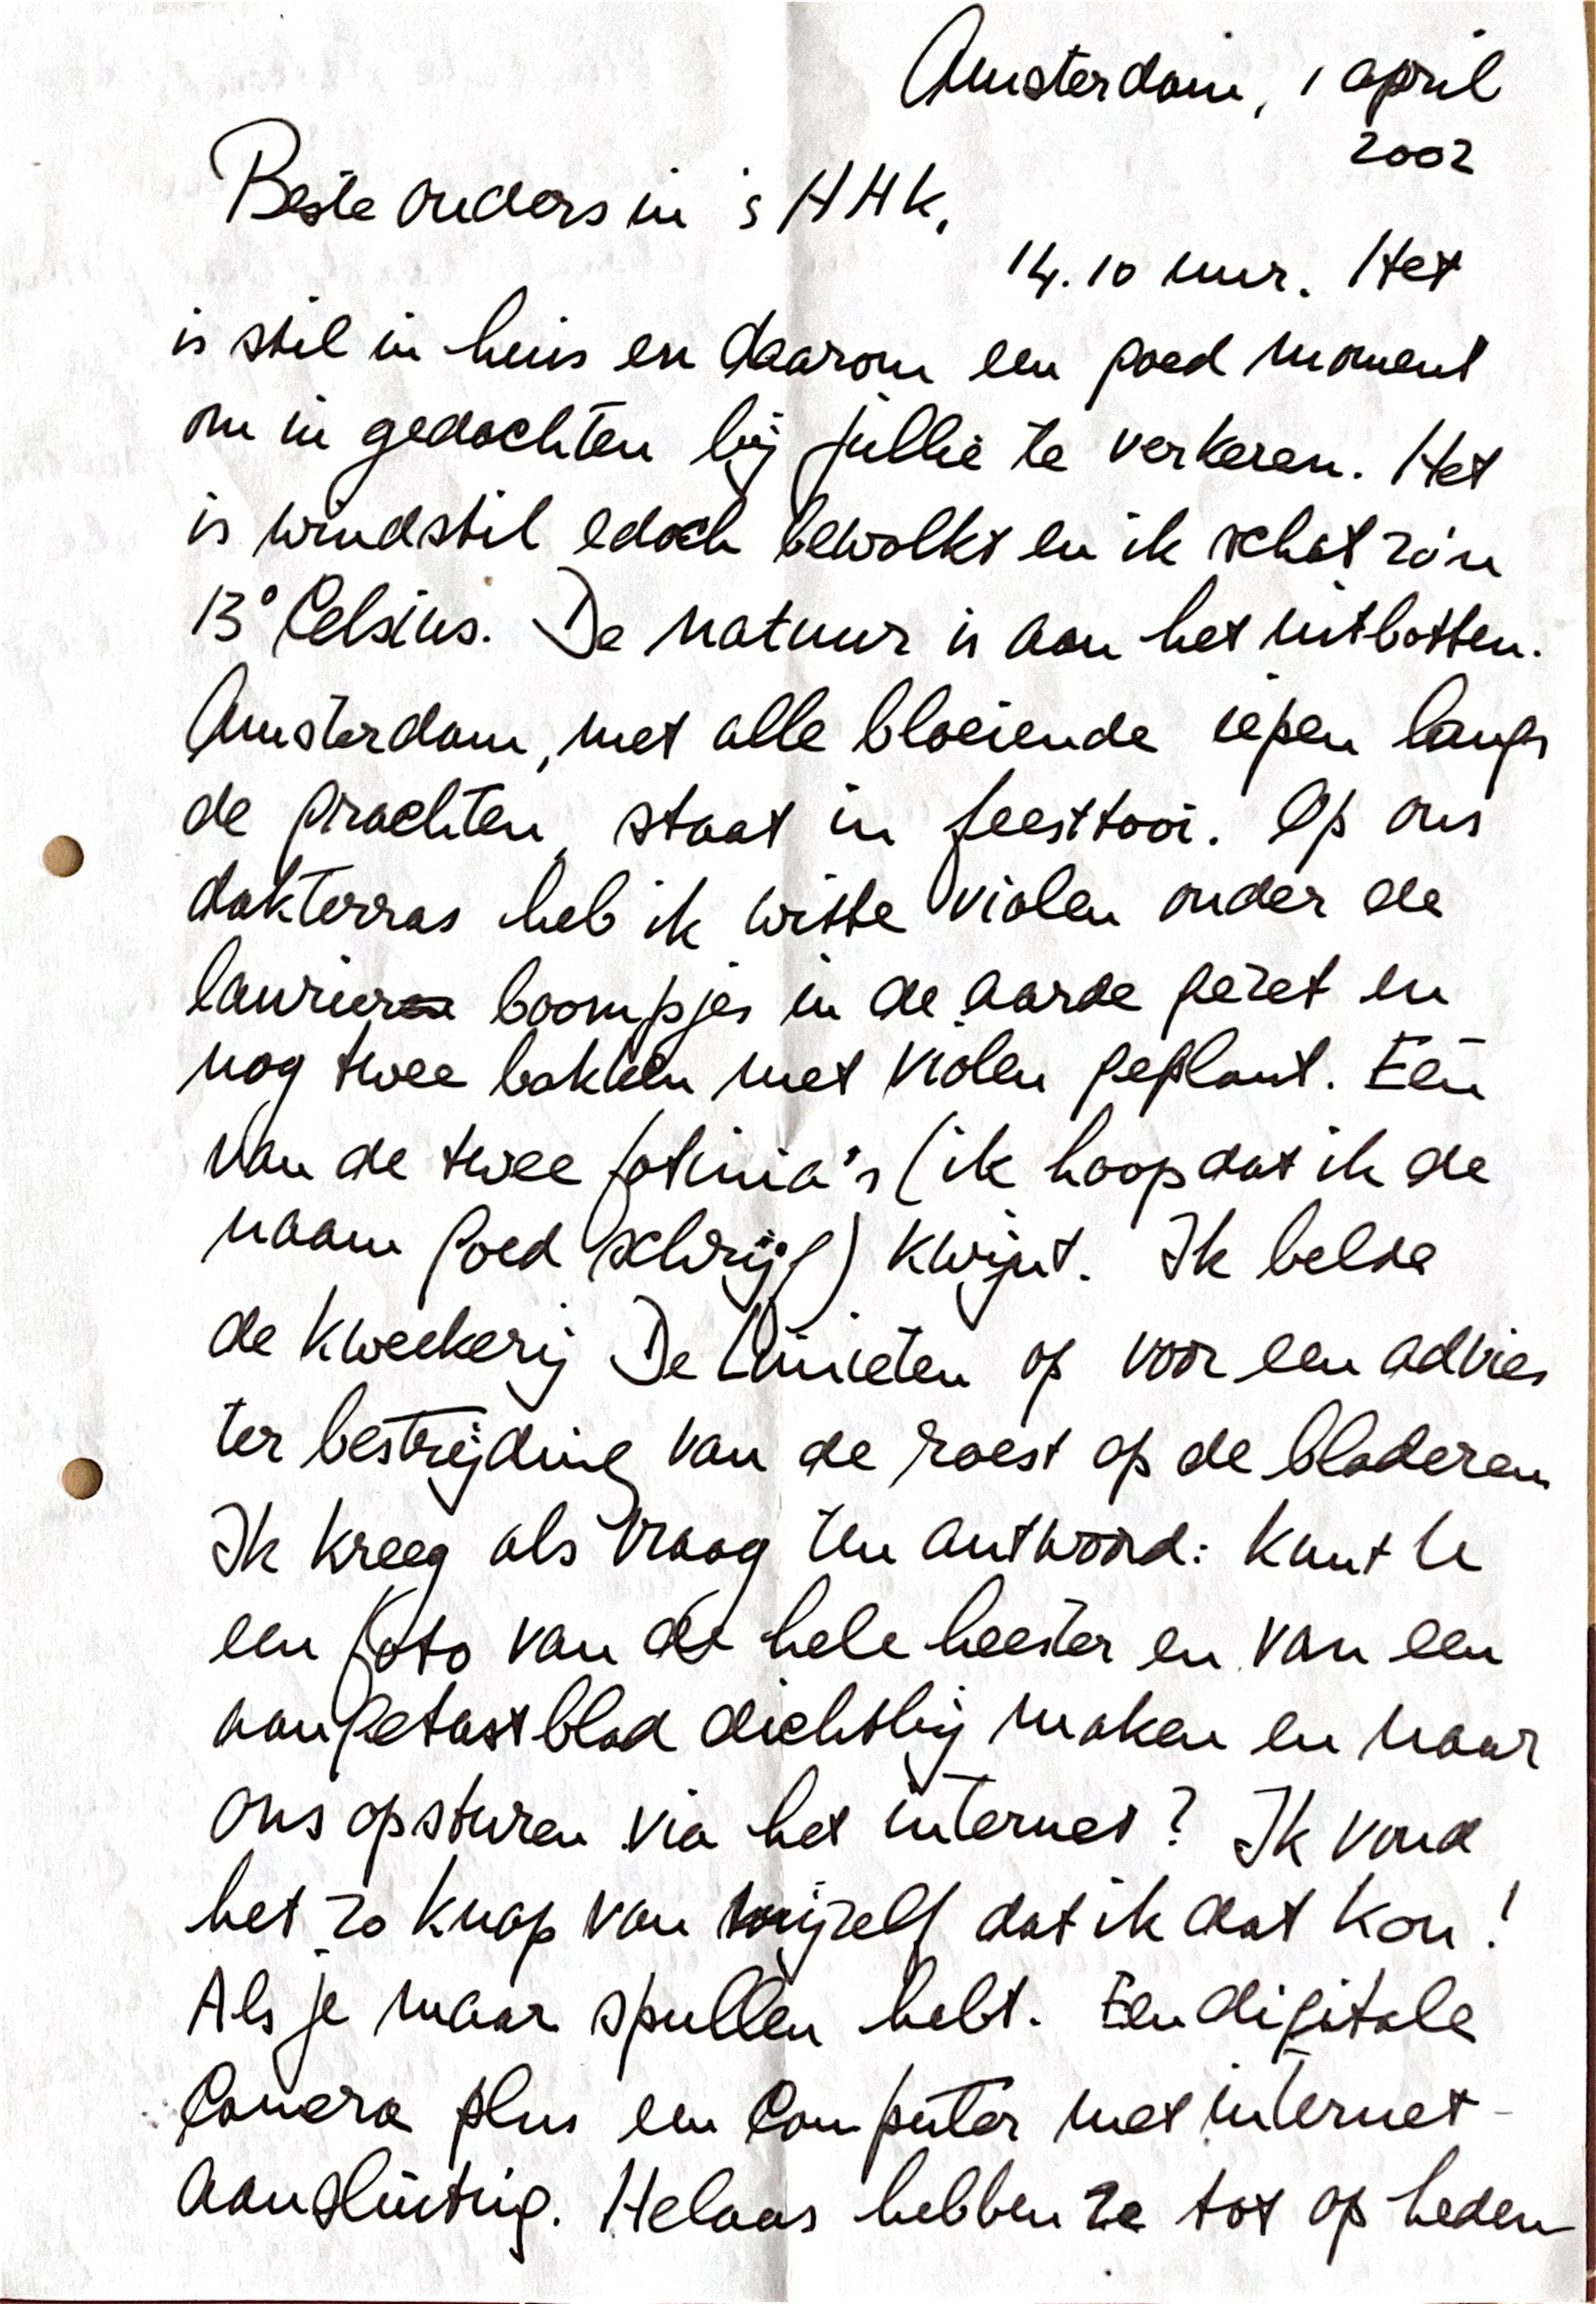 Amsterdam, 1 april
2002
Beste ouders in 's HHK,
14.10 uur. Het
is stil in huis en daarom een goed moment
om in gedachten bij jullie te verkeren. Het
is windstil edoch bewolkt en ik schat zo'n
13° Celsius. De natuur is aan het uitbotten.
Amsterdam, met alle bloeiende iepen langs
de grachten, staat in feesttooi. Op ons
dakterras heb ik witte violen onder de
laurier boompjes in de aarde gezet en
nog twee bakken met violen geplant. Eén
van de twee fotinia's (ik hoop dat ik de
naam goed schrijf) kwijnt. Ik belde
de kwekerij De Limieten op voor een advies
ter bestrijding van de roest op de bladeren
Ik kreeg als vraag ten antwoord: kunt U
een foto van de hele heester en van een
aangetast blad dichtbij maken en naar
ons opsturen via het internet? Ik vond
het zo knap van mijzelf dat ik dat kon!
Als je maar spullen hebt. Een digitale
Camera plus een Computer met internet-
aansluiting. Helaas hebben ze tot op heden